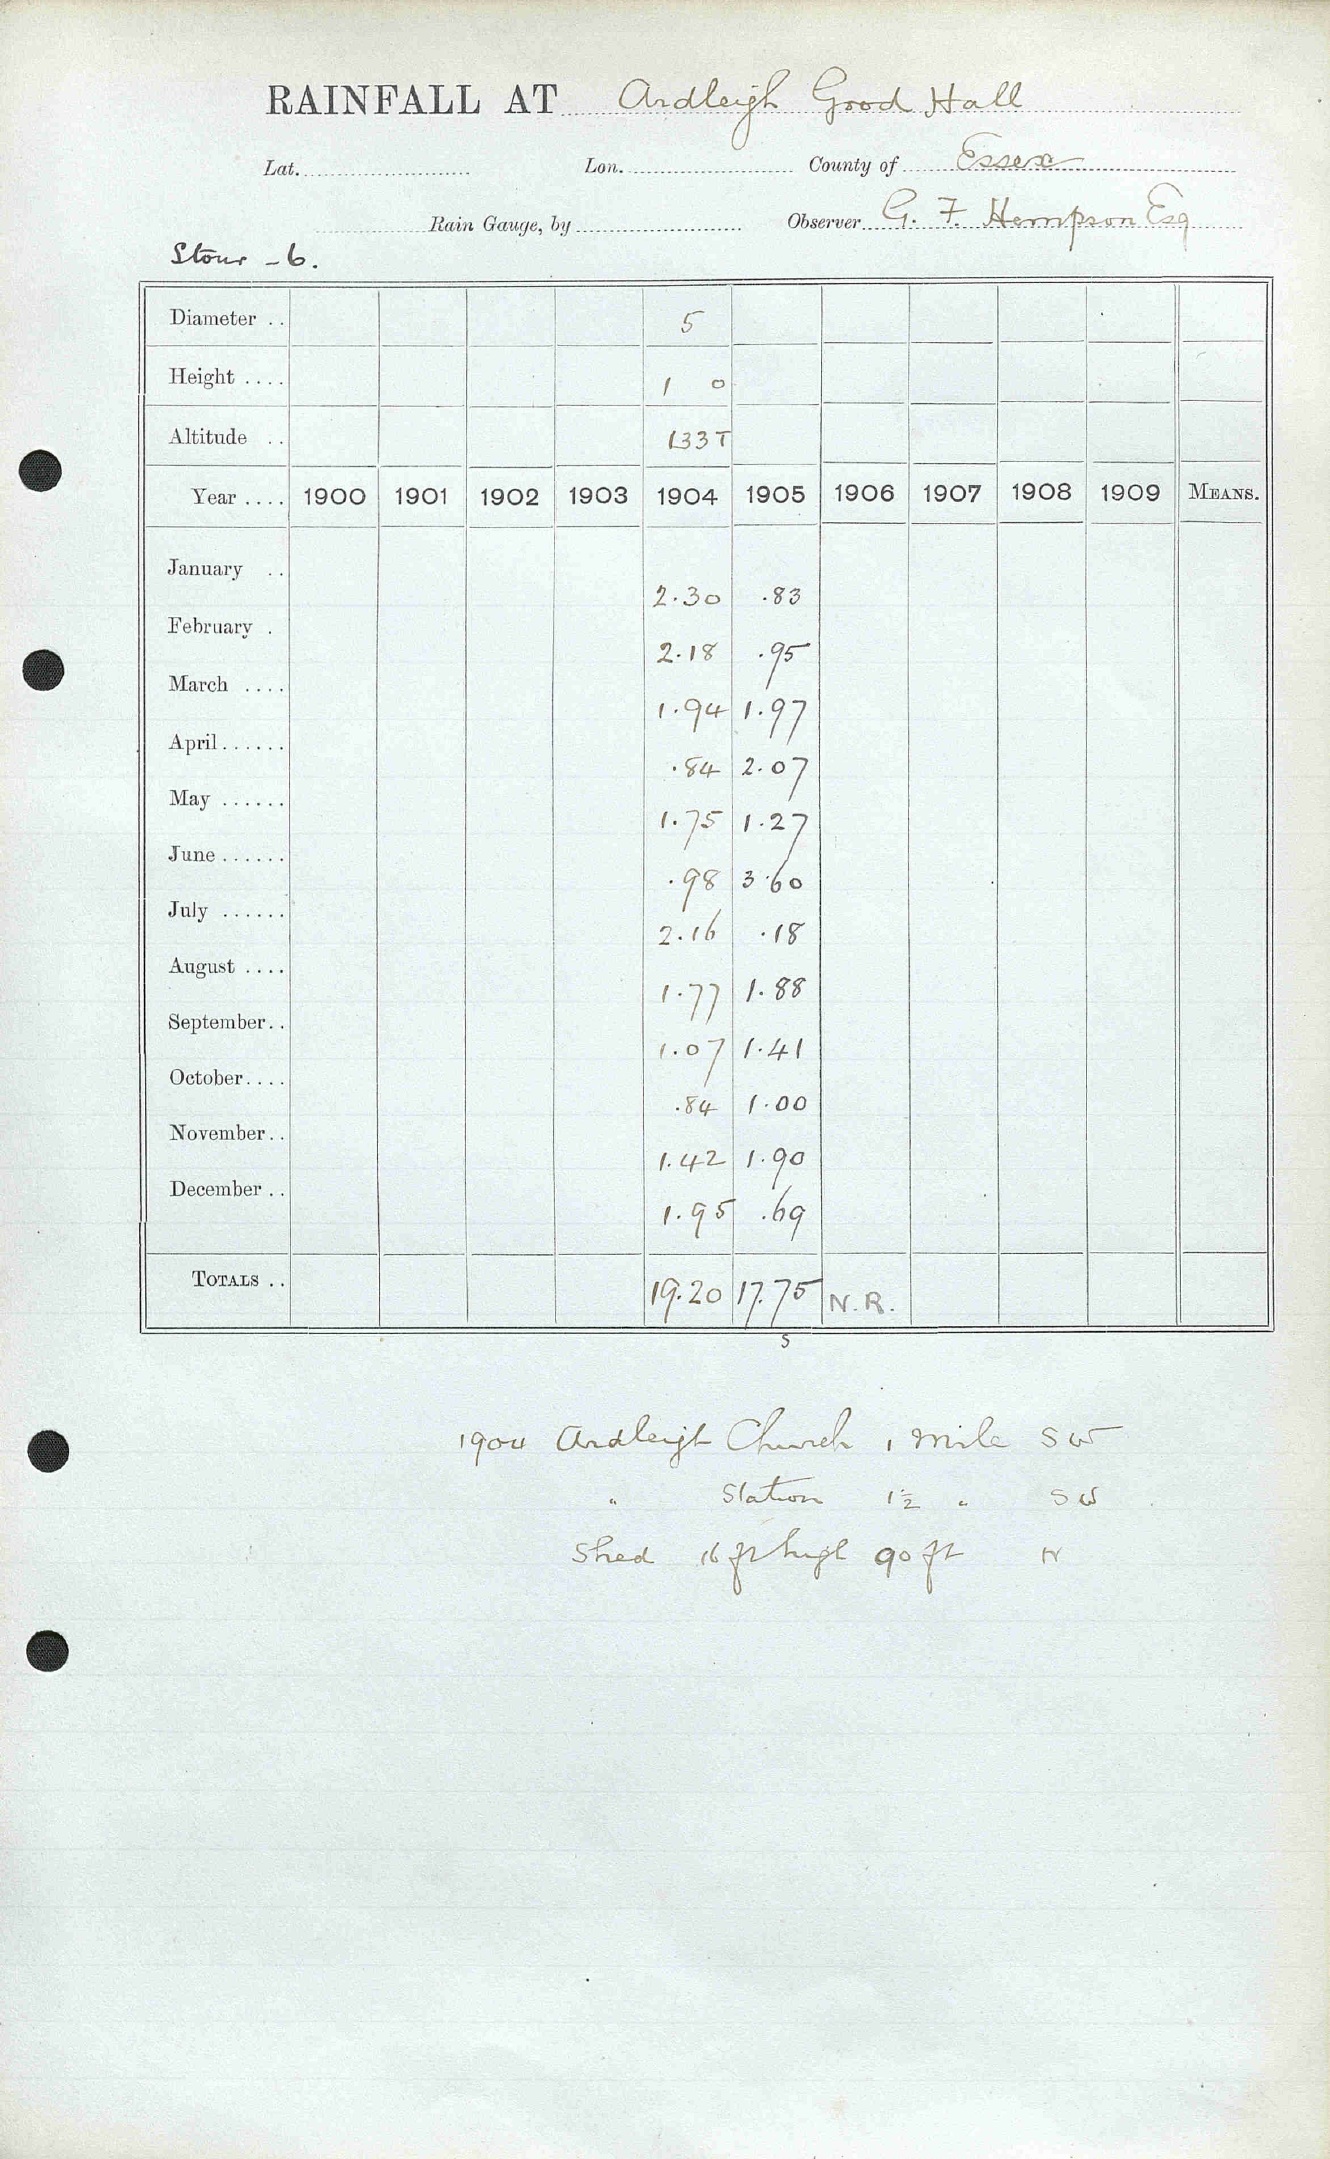 RAINFALL AT Ardleigh Good Hall
Lat. Lon. County of Essex
Rain Gauge, by Observer G. F. Hempson Esq
Stour - 6.
Diameter .. 5
Height .... 1 0
Altitude .. 133 T
Year .... 1900 1901 1902 1903 1904 1905 1906 1907 1908 1909 MEANS.
January .. 2.30 .83
February . 2.18 .95
March .... 1.94 1.97
April...... .84 2.07
May ...... 1.75 1.27
June...... .98 3.60
July ...... 2.16 .18
August .... 1.77 1.88
September.. 1.07 1.41
October.... .84 1.00
November.. 1.42 1.90
December.. 1.95 .69
TOTALS .. 19.20 17.75 N.R.
S
1904 Ardleigh Church 1 mile SW
" Station 1½ " SW
Shed 16 ft high 90 ft N